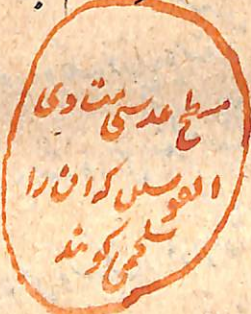 سطح عدسی متساوی
القوسین که انرا
شلجمی کویند